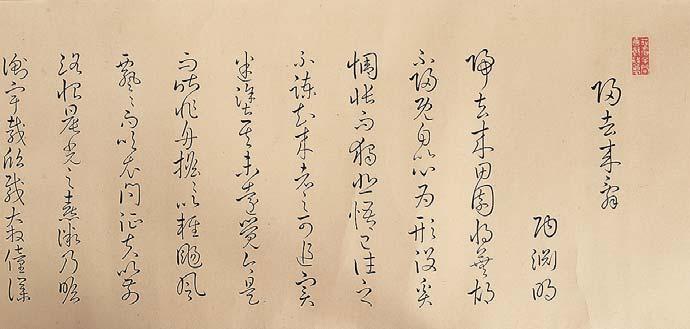 歸去來辭
陶淵明
歸去來田園將蕪胡
不歸既自以心為形役奚
惆悵而獨悲悟已往之
不諫知來者之可追實
迷塗其未遠覺今是
而昨非舟搖々以輕颺風
飄々而吹衣問征夫以前
路恨晨光之熹微乃瞻
衡宇載欣載奔僮僕